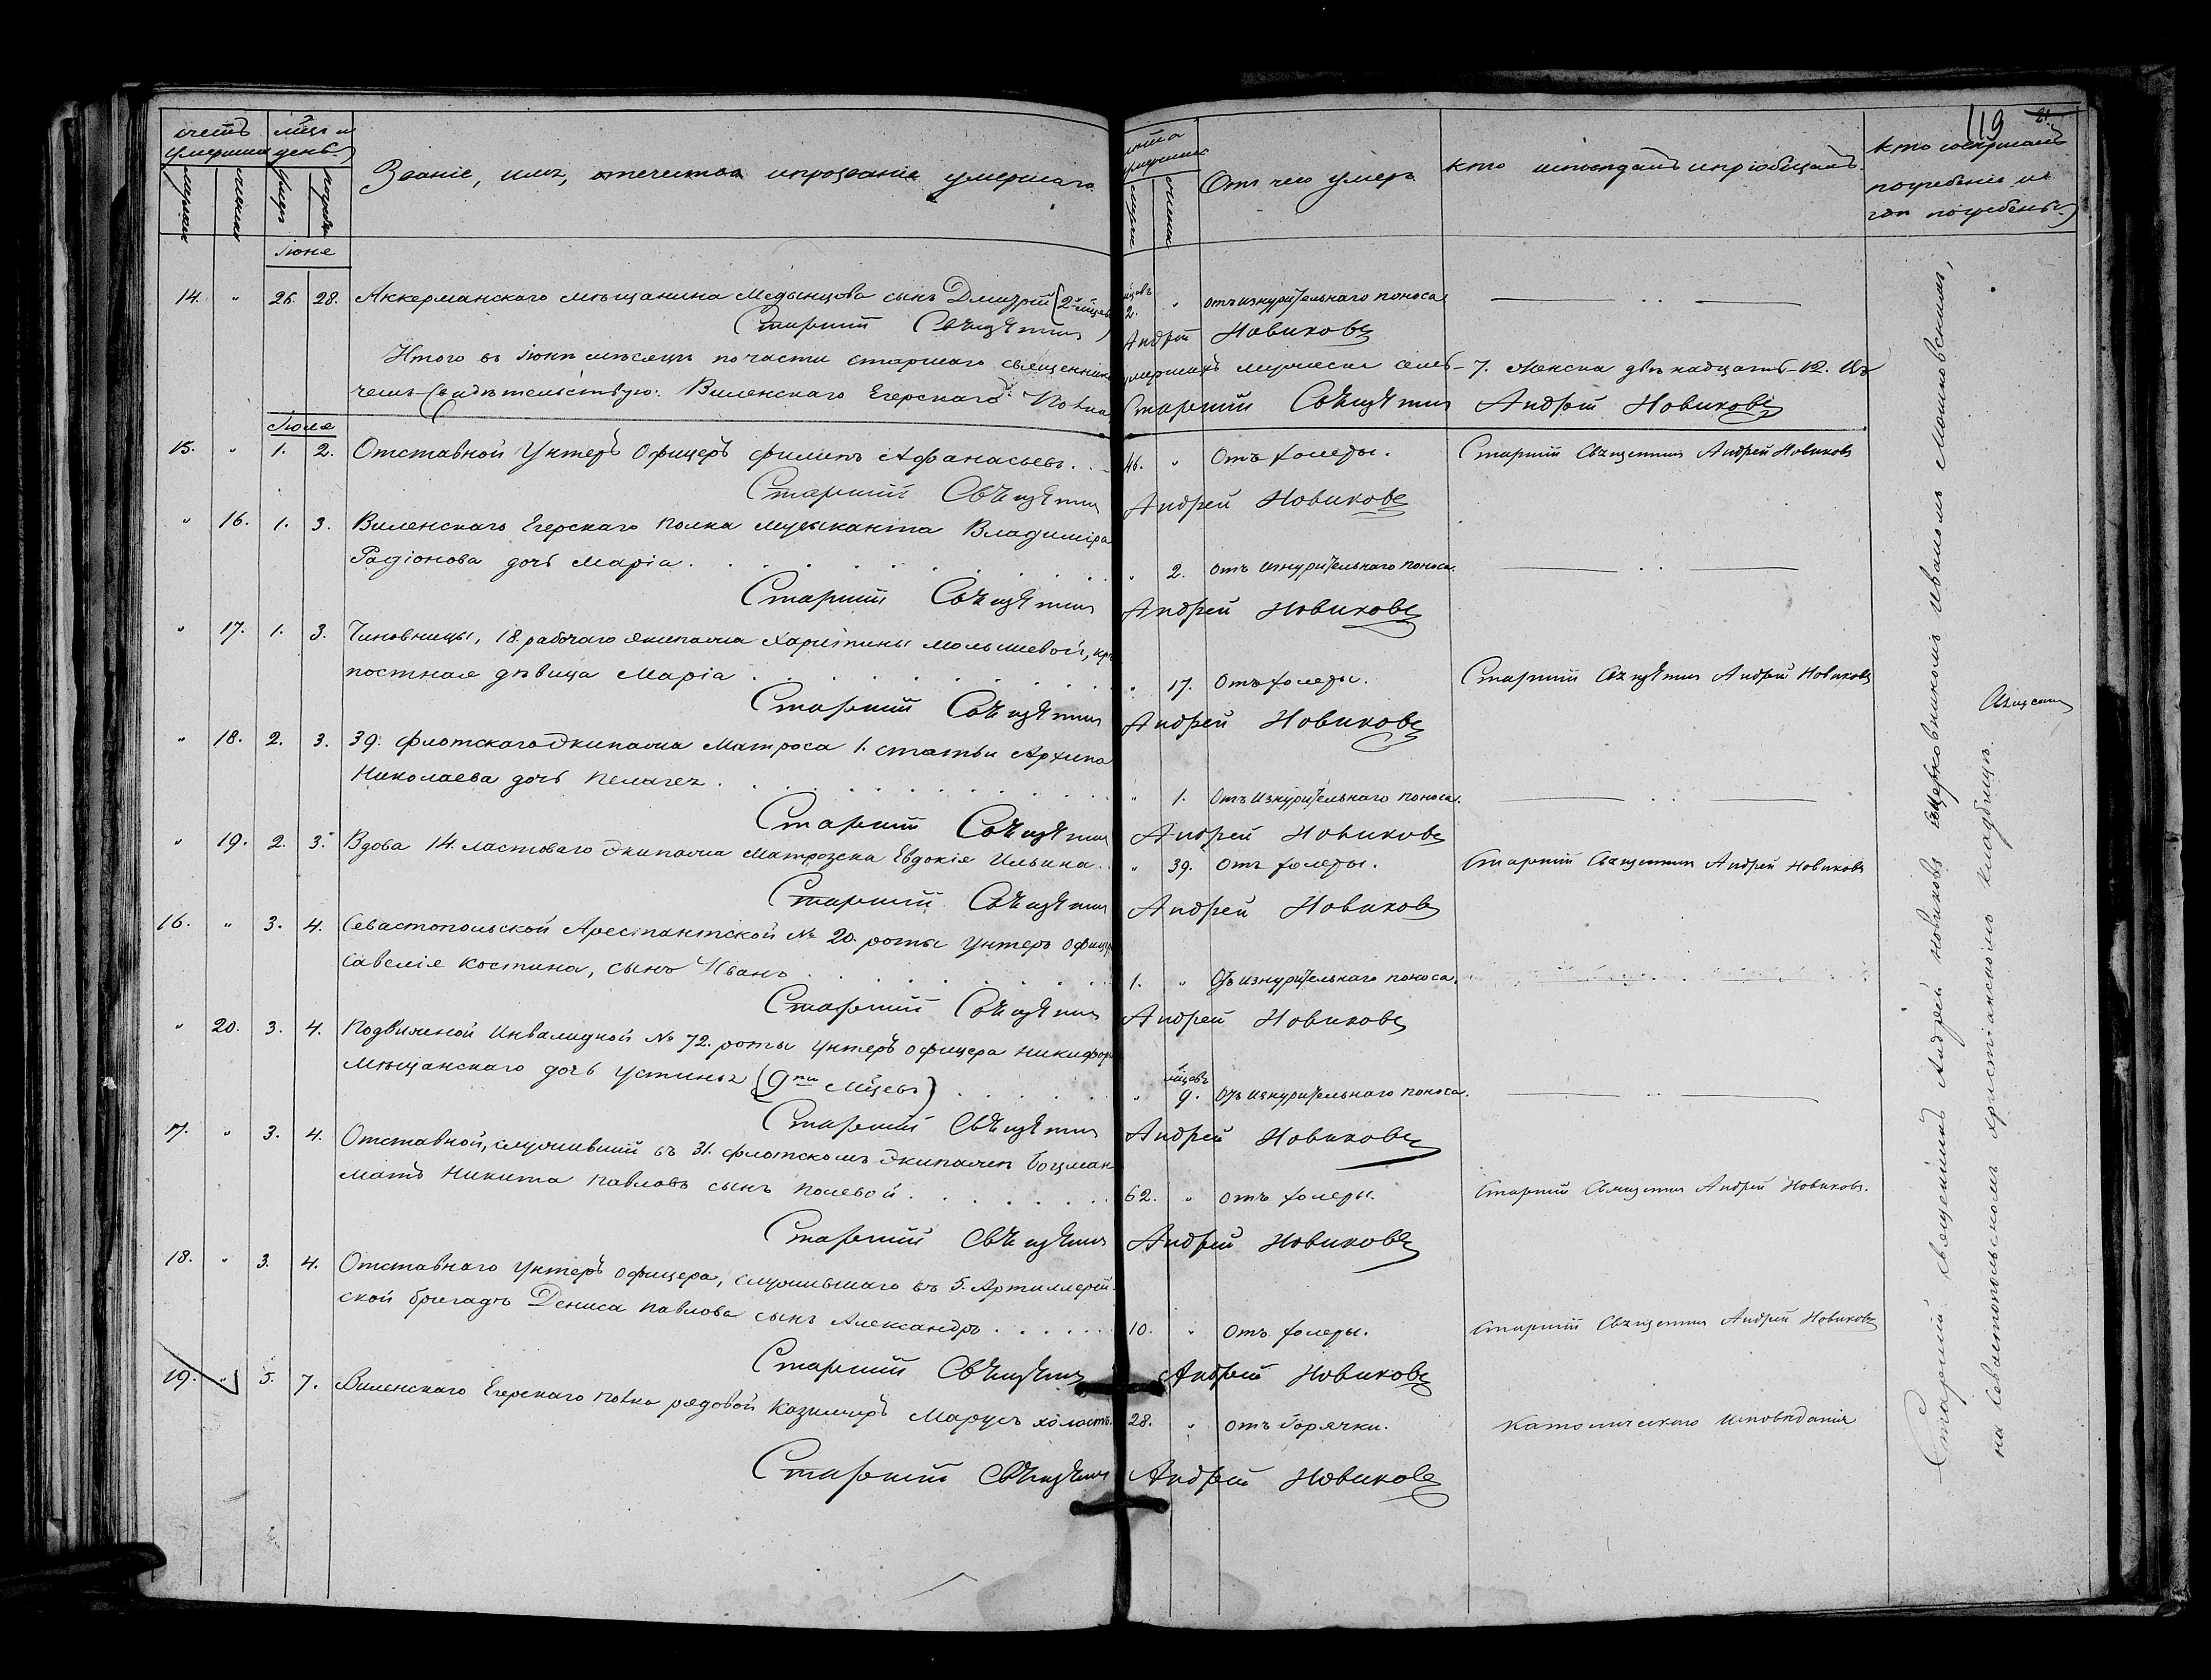 119 21
счетъ умершихъ
мѣсяцъ и день
Званіе, имя, отечество и прозваніе умершаго
лѣта умершихъ
Отъ чего умеръ
Кто исповѣдалъ и пріобщалъ
Кто совершалъ погребеніе и гдѣ погребены
Іюня
14. " 26. 28. Аккерманскаго мѣщанина Медынцова сынъ Дмитрій (2хъ мѣсяц) мѣсцовъ 2. " отъ изнурительнаго поноса
Старшій Священникъ Андрей Новиковъ
Итого въ Іюнѣ мѣсяцѣ по части старшаго священника умершихъ мужеска семь - 7. Женска двѣнадцать - 12. Въ
чемъ свидѣтельствую: Виленскаго Егерскаго Полка Старшій Священникъ Андрей Новиковъ
Іюля
15. " 1. 2. Отставной Унтеръ Офицеръ Филипъ Афанасьевъ. 46. " Отъ холеры. Старшій Священникъ Андрей Новиковъ
Старшій Священникъ Андрей Новиковъ
" 16. 1. 3. Виленскаго Егерскаго Полка музыканта Владиміра
Радіонова дочь Марія. " 2. отъ изнурительнаго поноса.
Старшій Священникъ Андрей Новиковъ
" 17. 1. 3. Чиновницы, 18. рабочаго экипажа Харитины Малышевой, крѣ
постная дѣвица Марія " 17. Отъ холеры. Старшій Священникъ Андрей Новиковъ
Старшій Священникъ Андрей Новиковъ
" 18. 2. 3. 39. флотскаго Экипажа Матроса 1. статьи Архипа
Николаева дочь Пелагея. " 1. Отъ изнурительнаго поноса.
Старшій Священникъ Андрей Новиковъ
" 19. 2. 3. Вдова 14. ластоваго Экипажа Матрозска Евдокія Ильина. " 39. Отъ холеры. Старшій Священникъ Андрей Новиковъ
Старшій Священникъ Андрей Новиковъ
16. " 3. 4. Севастопольской Арестантской № 20. роты Унтеръ Офицера
Савелія Костина, сынъ Иванъ 1. " Отъ изнурительнаго поноса.
Старшій Священникъ Андрей Новиковъ
" 20. 3. 4. Подвижной Инвалидной № 72. роты Унтеръ Офицера Никифора
Мѣщанскаго дочь Устинья (9ти мѣсцев) " мѣсцовъ 9. Отъ изнурительнаго поноса.
Старшій Священникъ Андрей Новиковъ
17. " 3. 4. Отставной, служившій въ 31. флотскомъ Экипажѣ Боцман
матъ Никита Павловъ сынъ Полевой. 62. " отъ холеры. Старшій Священникъ Андрей Новиковъ.
Старшій Священникъ Андрей Новиковъ
18. " 3. 4. Отставнаго Унтеръ Офицера, служившаго въ 5. Артиллерій
ской бригадѣ Дениса Павлова сынъ Александръ 10. " Отъ холеры. Старшій Священникъ Андрей Новиковъ
Старшій Священникъ Андрей Новиковъ
19. " 5. 7. Виленскаго Егерскаго Полка рядовой Казимиръ Марусъ холостъ. 28. " отъ Горячки. Католическаго Исповѣданія
Старшій Священникъ Андрей Новиковъ
Старшій священникъ Андрей Новиковъ церковникомъ Иваномъ
на Севастопольскомъ христіанскомъ кладбищѣ. Священникъ